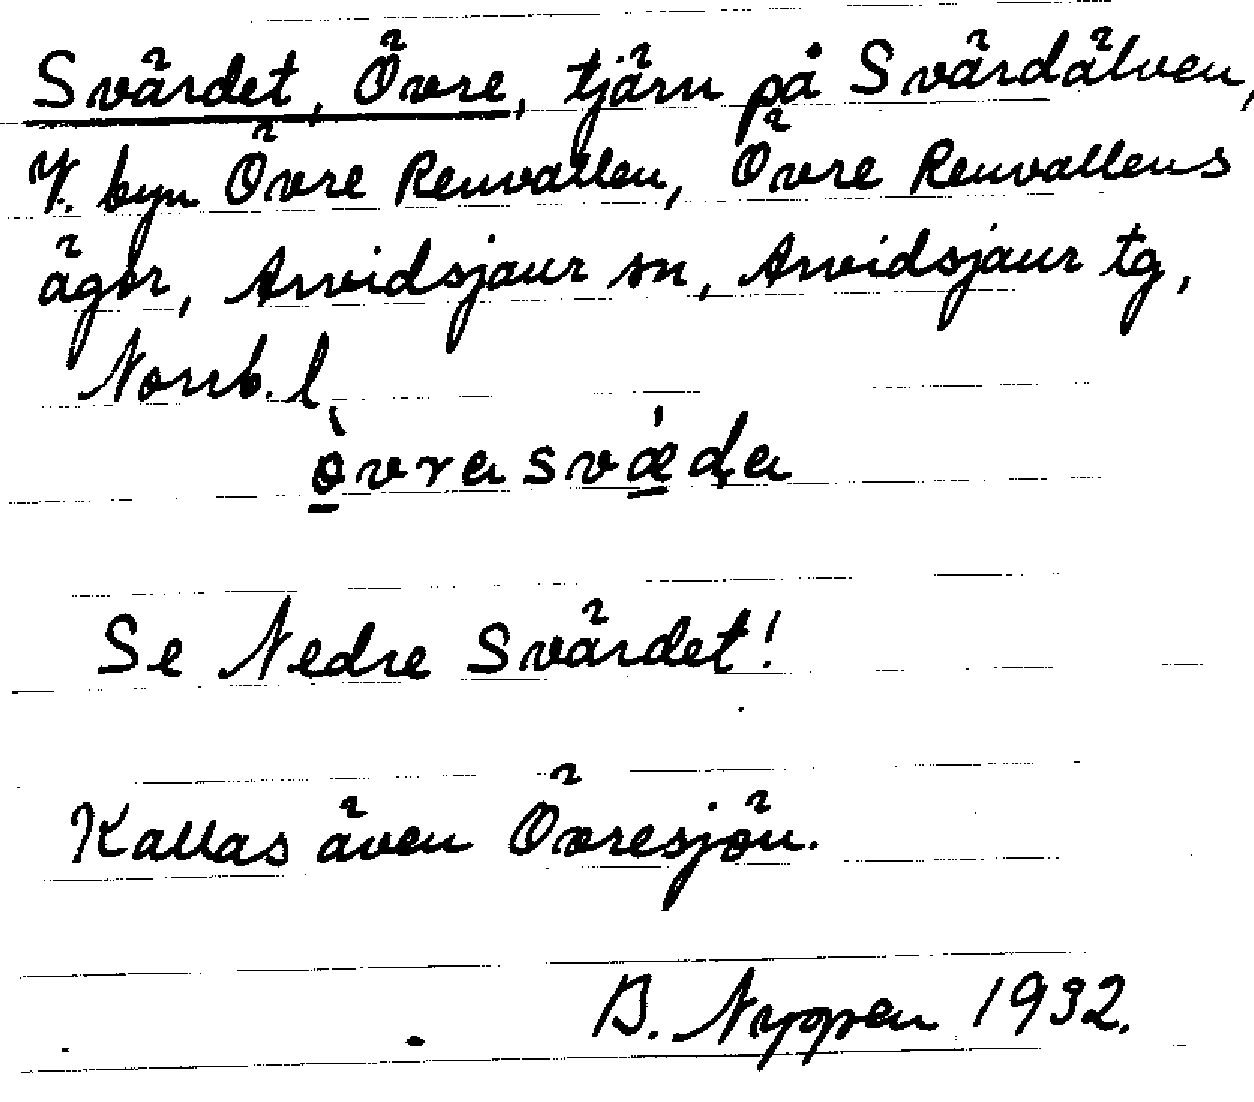 Svärdet, Övre, tjärn på Svärdälven,
V. byn Övre Renvallen, Övre Renvallens
ägor, Arvidsjaur sn, Arvidsjaur tg,
Norrb. l.
òvra svǽḍa
Se Nedre Svärdet!
Kallas även Övresjön.
B. Nyppen 1932.